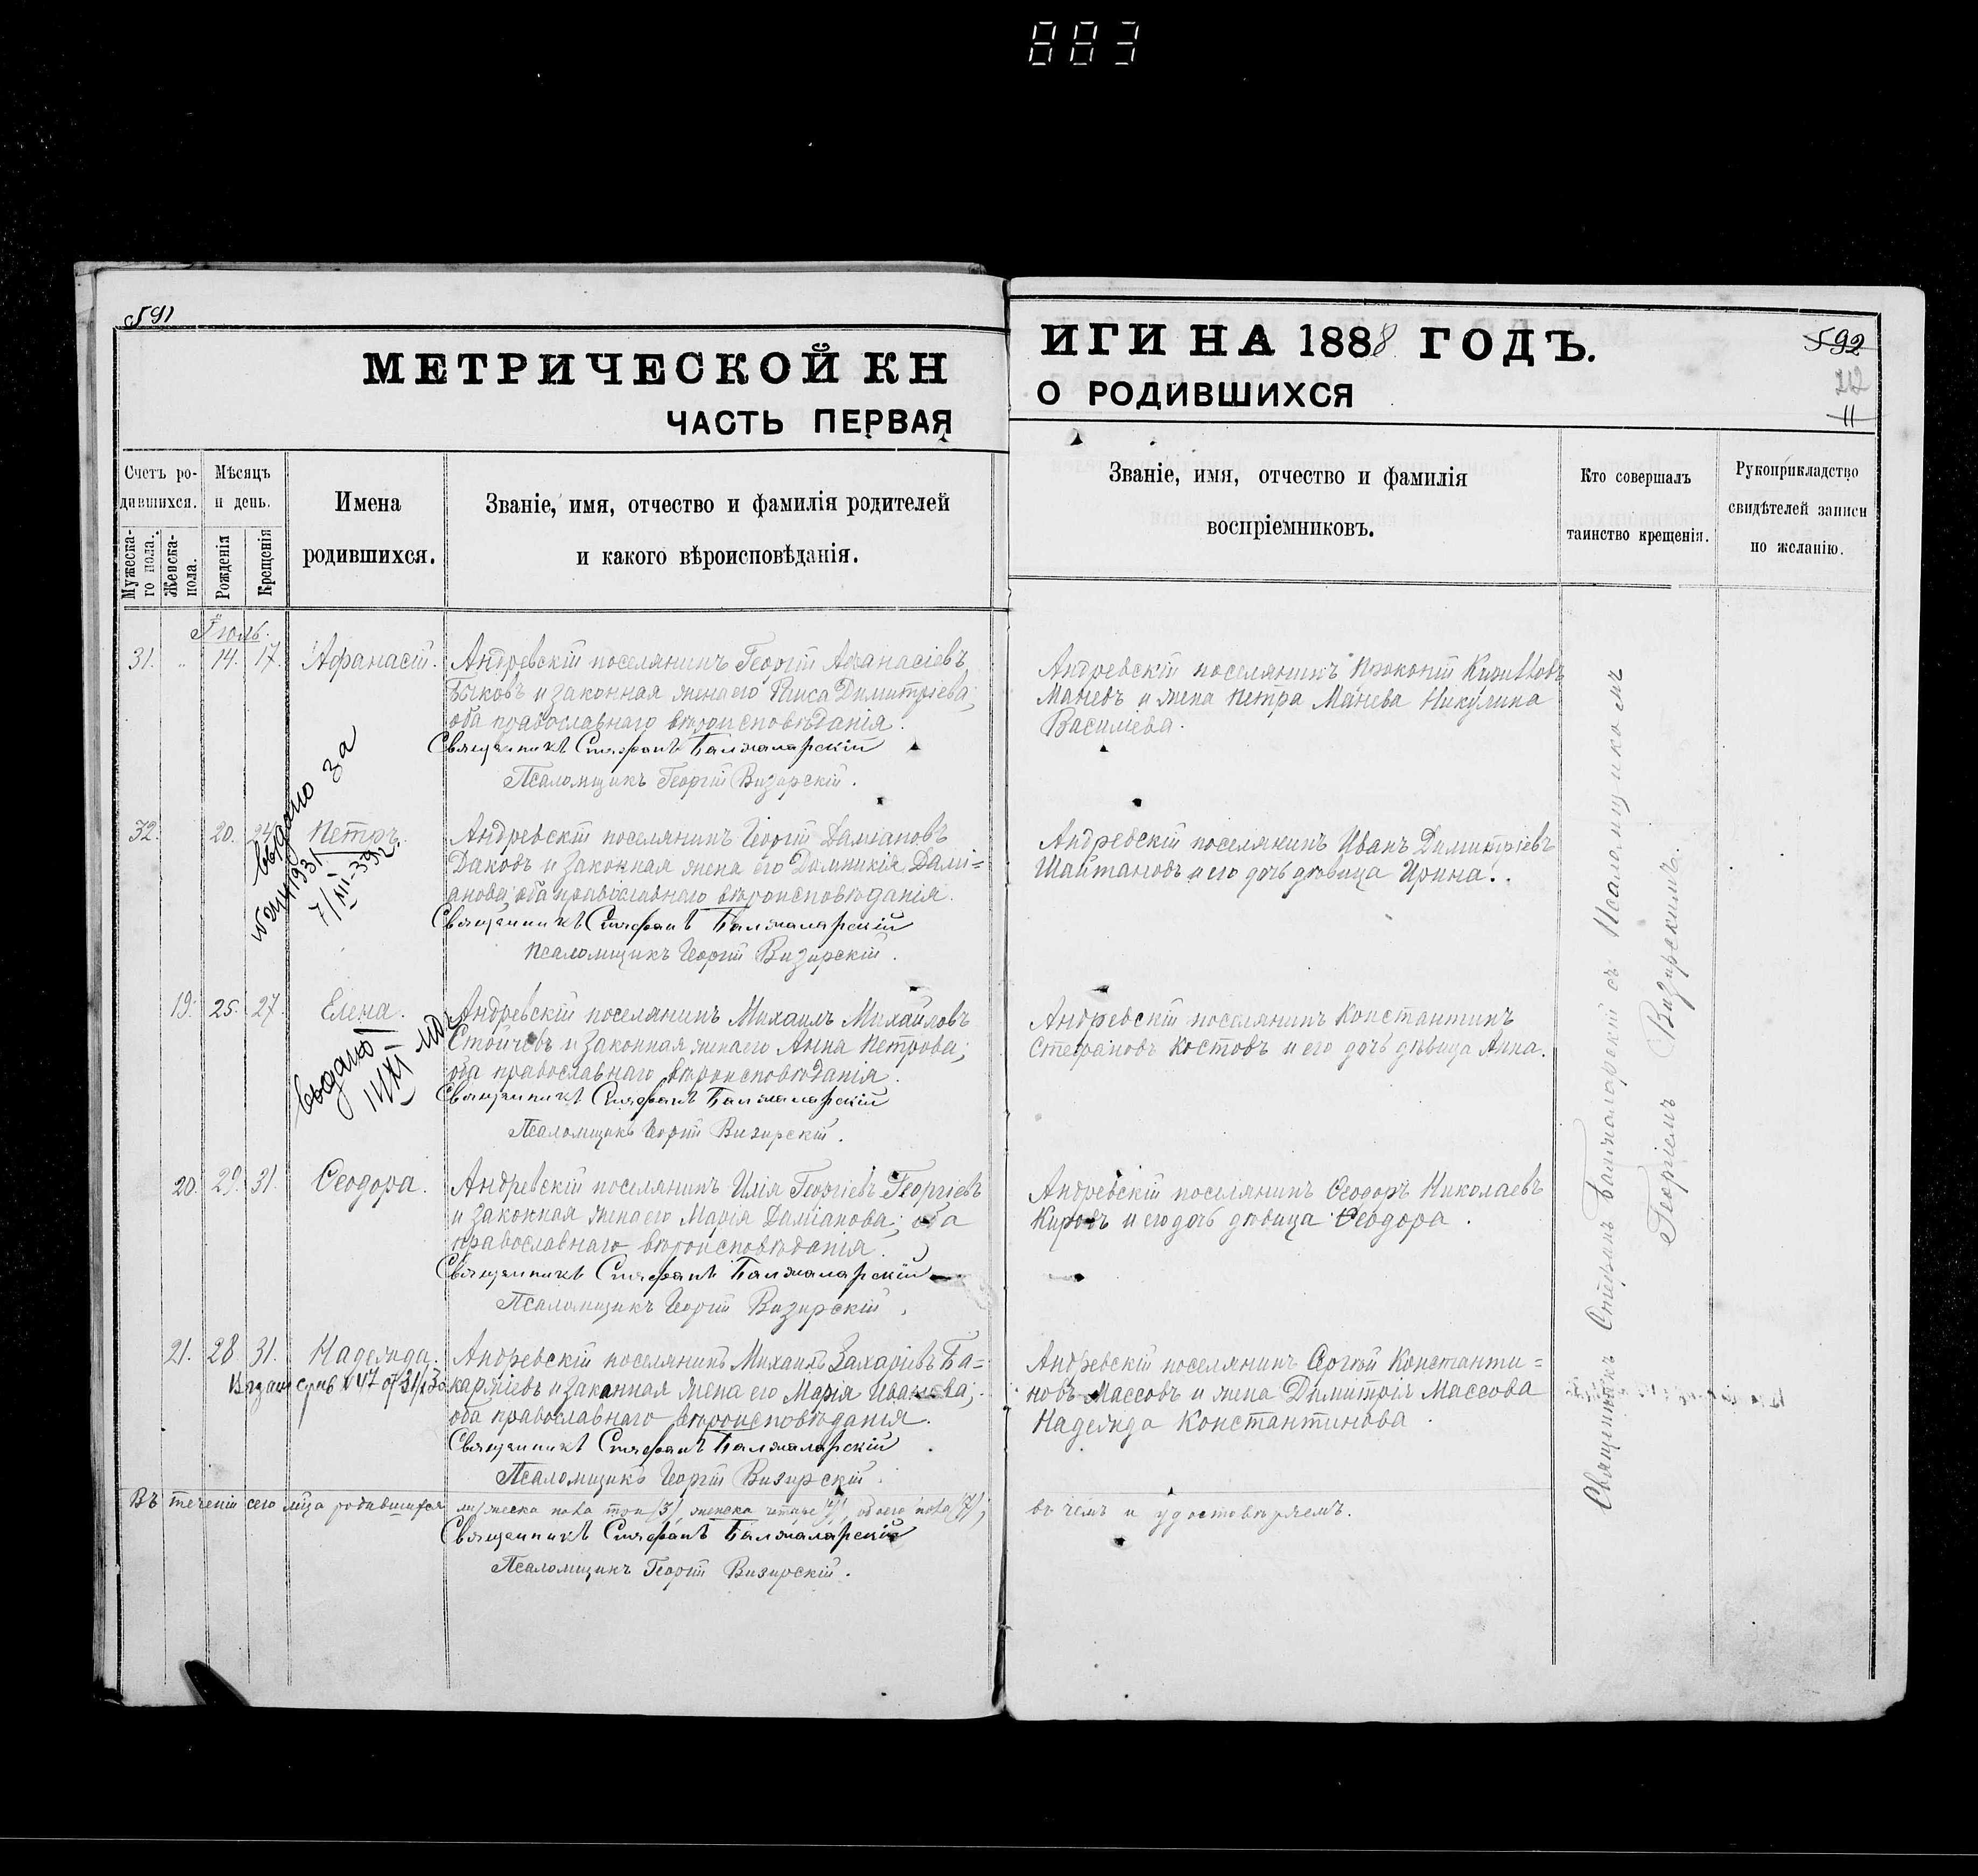 883
591
МЕТРИЧЕСКОЙ КН
ЧАСТЬ ПЕРВАЯ
ИГИ НА 1888 ГОДЪ.
О РОДИВШИХСЯ
592
11
Счетъ ро-
дившихся.
Мужеска-
го пола.
Женска-
пола.
Мѣсяцъ
и день.
Рожденія
Крещенія
Имена
родившихся.
Званіе, имя, отчество и фамилія родителей
и какого вѣроисповѣданія.
Званіе, имя, отчество и фамилія
воспріемниковъ.
Кто совершалъ
таинство крещенія.
Рукоприкладство
свидѣтелей записи
по желанію.
Іюль.
31. " 14. 17. Афанасій.
Андревскій поселянинъ Георгій Аѳанасіевъ
Бычковъ и законная жена его Раиса Димитріева;
оба православнаго вѣроисповѣданія.
Священникъ Стефанъ Балжаларскій
Псаломщикъ Георгій Визирскій.
Андревскій поселянинъ Прокопій
Маневъ и жена Петра Манева Никулина
Василіева.
32. 20. 24. Петръ.
выдано за
Андревскій поселянинъ Георгій Даміановъ
Даковъ и законная жена его Домникія Дамі=
анова; оба православнаго вѣроисповѣданія.
Священникъ Стефанъ Балжаларскій
Псаломщикъ Георгій Визирскій.
Андревскій поселянинъ Иванъ Димитріевъ
Шайтановъ и его дочь дѣвица Ирина.
19. 25. 27. Елена.
выдано
Андревскій поселянинъ Михаилъ Михайловъ
Стойчевъ и законная жена его Анна Петрова;
оба православнаго вѣроисповѣданія.
Священникъ Стефанъ Балжаларскій
Псаломщикъ Георгій Визирскій.
Андревскій поселянинъ Константинъ
Стефановъ Костовъ и его дочь дѣвица Анна.
20. 29. 31. Ѳеодора.
Андревскій поселянинъ Илія Георгіевъ Георгіевъ
и законная жена его Марія Даміанова; оба
православнаго вѣроисповѣданія.
Священникъ Стефанъ Балжаларскій
Псаломщикъ Георгій Визирскій.
Андревскій поселянинъ Ѳеодоръ Николаевъ
Кировъ и его дочь дѣвица Ѳеодора.
21. 28 31. Надежда.
Андревскій поселянинъ Михаилъ Захаріевъ Ба=
каржіевъ и законная жена его Марія Иванова;
оба православнаго вѣроисповѣданія.
Священникъ Стефанъ Балжаларскій
Псаломщикъ Георгій Визирскій.
Андревскій поселянинъ Сергѣй Константи=
новъ Массовъ и жена Димитрія Массова
Надежда Константинова.
Въ теченіи сего м-ца родившихся мужеска пола три (3), женска четыре (4), обоего пола (7);
въ чемъ и удостовѣряемъ.
Священникъ Стефанъ Балжаларскій
Псаломщикъ Георгій Визирскій.
Священникъ Стефанъ Балжаларскій съ Псаломщикомъ
Георгіемъ Визирскимъ.